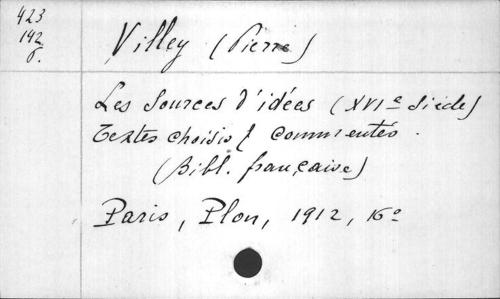 423
142
Villey (Pierre)
Les Sources d'idées (XVIe Siècle)
Textes choisis & commentés.
(Bibl. française)
Paris, Plon, 1912, 16o